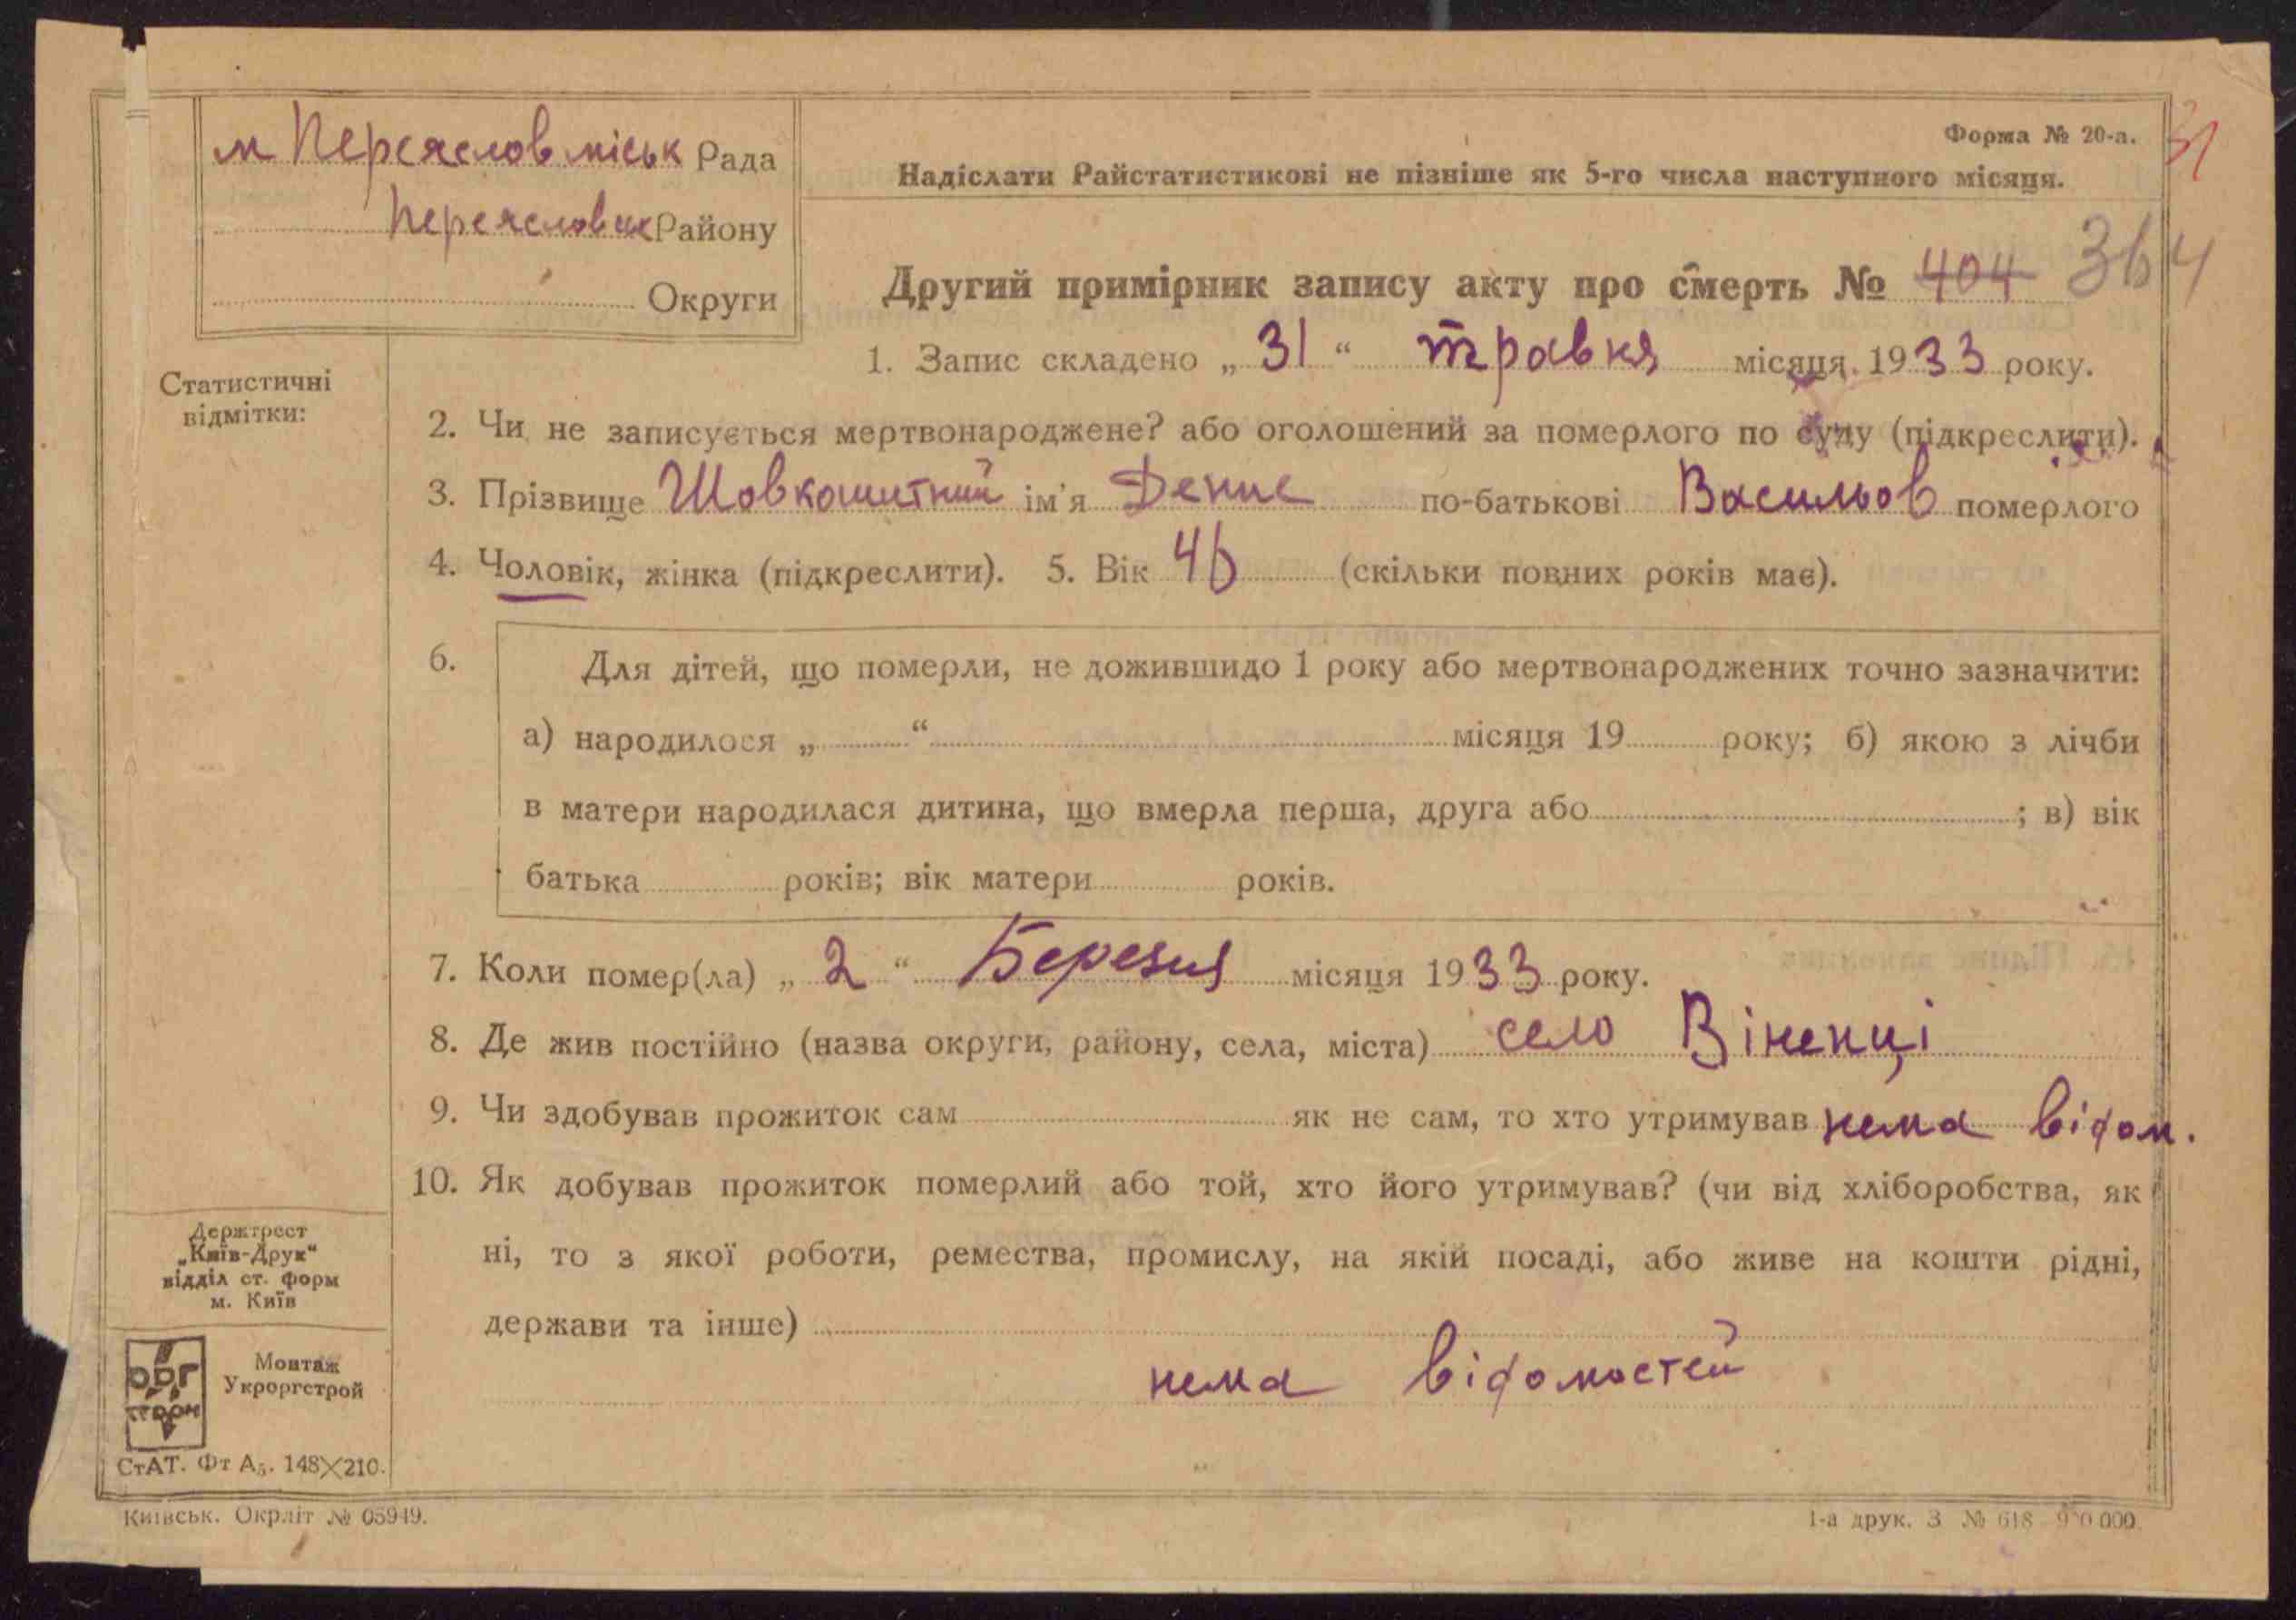 м Переяслов міськ Рада
Переясловськ Району
Округи
Форма № 20-а.
31
Надіслати Райстатистикові не пізніше як 5-го числа наступного місяця.
Другий примірник запису акту про смерть № 404 364
1. Запис складено „31“ травня місяця 1933 року.
Статистичні
відмітки:
2. Чи не записується мертвонароджене? або оголошений за померлого по суду (підкреслити).
3. Прізвище Шовкошитний ім'я Денис по-батькові Васильов померлого
4. Чоловік, жінка (підкреслити). 5. Вік 46 (скільки повних років має).
6. Для дітей, що померли, не дожившидо 1 року або мертвонароджених точно зазначити:
а) народилося „ “ місяця 19 року; б) якою з лічби
в матери народилася дитина, що вмерла перша, друга або ; в) вік
батька років; вік матери років.
7. Коли помер(ла) „2“ Березня місяця 1933 року.
8. Де жив постійно (назва округи, району, села, міста) село Віненці
9. Чи здобував прожиток сам як не сам, то хто утримував нема відом.
10. Як добував прожиток померлий або той, хто його утримував? (чи від хліборобства, як
ні, то з якої роботи, ремества, промислу, на якій посаді, або живе на кошти рідні,
держави та інше)
нема відомостей
Держтрест
„Київ-Друк“
відділ ст. форм
м. Київ
ОРГ
СТРОЙ
Монтаж
Укроргстрой
СтАТ. Фт А₅. 148×210.
Київськ. Окрліт № 05949.
1-а друк. З № 618